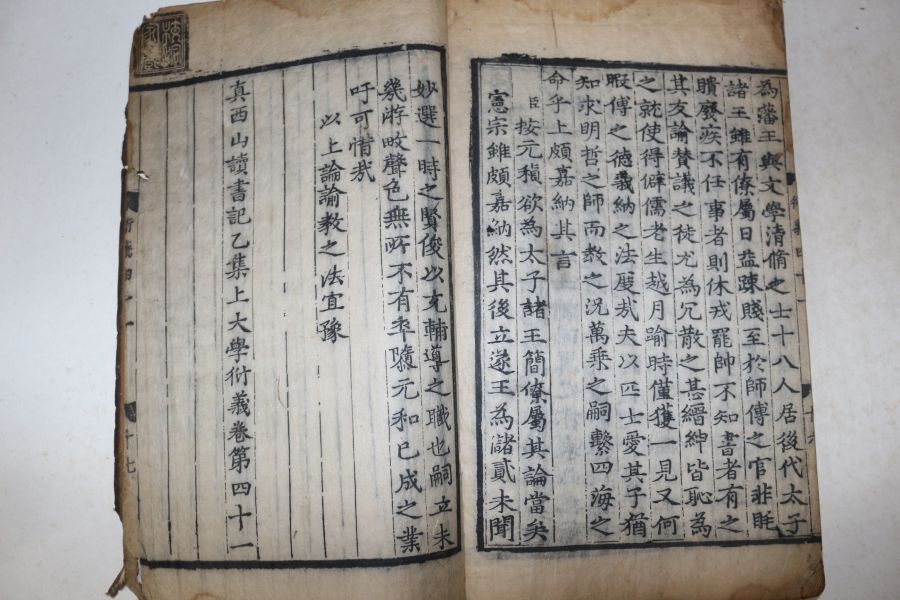 為藩王與文學清脩之士十八人居後代太子
諸王雖有僚屬日益疎賤至於師傅之官非眊
瞶廢疾不任事者則休戎罷帥不知書者有之
其友諭賛議之徒尤為冗散之甚縉紳皆恥為
之就使得僻儒老生越月踰時僅獲一見又何
暇傅之德義納之法度哉夫以匹士愛其子猶
知求明哲之師而教之況萬乘之嗣繫四海之
命乎上頗嘉納其言
臣按元稹欲為太子諸王簡僚屬其論當矣
憲宗雖頗嘉納然其後立遂王為儲貳未聞
妙選一時之賢俊以充輔導之職也嗣立未
幾游畋聲色無所不有卒隳元和已成之業
吁可惜哉
以上論諭教之法宜豫
真西山讀書記乙集上大學衍義卷第四十一
衍義四十一
十七